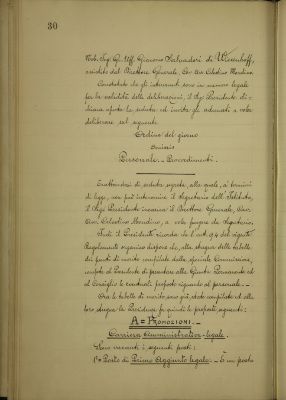 30
Nob. Sig. Gr. Uff. Giacomo Salvadori di Wiesenhoff,
assistito dal Direttore Generale, Cav. Avv. Celestino Mendino
Constatato che gli intervenuti sono in numero legale
per la validità delle deliberazioni, il Sig. Presidente di-
chiara aperta la seduta ed invita gli adunati a voler
deliberare sul seguente
Ordine del giorno
Omissis
Personale - Provvedimenti.
Trattandosi di seduta segreta, alla quale, ai termini
di legge, non può intervenire il Segretario dell'Istituto,
il Sig. Presidente incarica il Direttore Generale, Cav.
Avv. Celestino Mendino, a voler fungere da Segretario.
Indi il Presidente ricorda che l'art. 94 del vigente
Regolamento organico dispone che, alla stregua delle tabelle
dei punti di merito compilate dalla speciale Commissione,
compete al Presidente di presentare alla Giunta Permanente ed
al Consiglio le eventuali proposte riguardo al personale.-
Ora le tabelle di merito sono già state compilate ed alla
loro stregua la Presidenza fa quindi le proposte seguenti:
A = Promozioni. -
Carriera Amministrativa - legale.
Sono vacanti i seguenti posti:
1° Posto di Primo Aggiunto legale. - È un posto